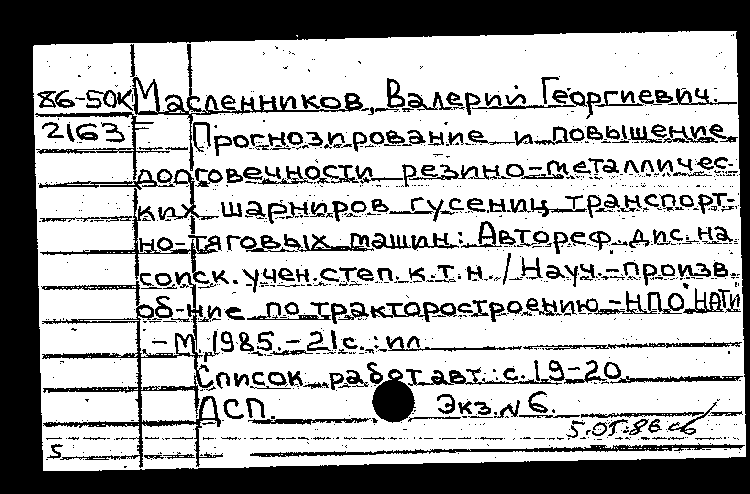 86-50К Масленников, Валерий Георгиевич.
2163 Прогнозирование и повышение
долговечности резино-металличес-
ких шарниров гусениц транспорт-
но-тяговых машин: Автореф. дис. на
соиск. учен. степ. к.т.н. / Науч.-произв.
об-ние по тракторостроению-НПО НАТИ
.-М., 1985.-21с.:ил
Список работ авт.: с. 19-20.
ДСП. Экз.№6.
5.05.86
5